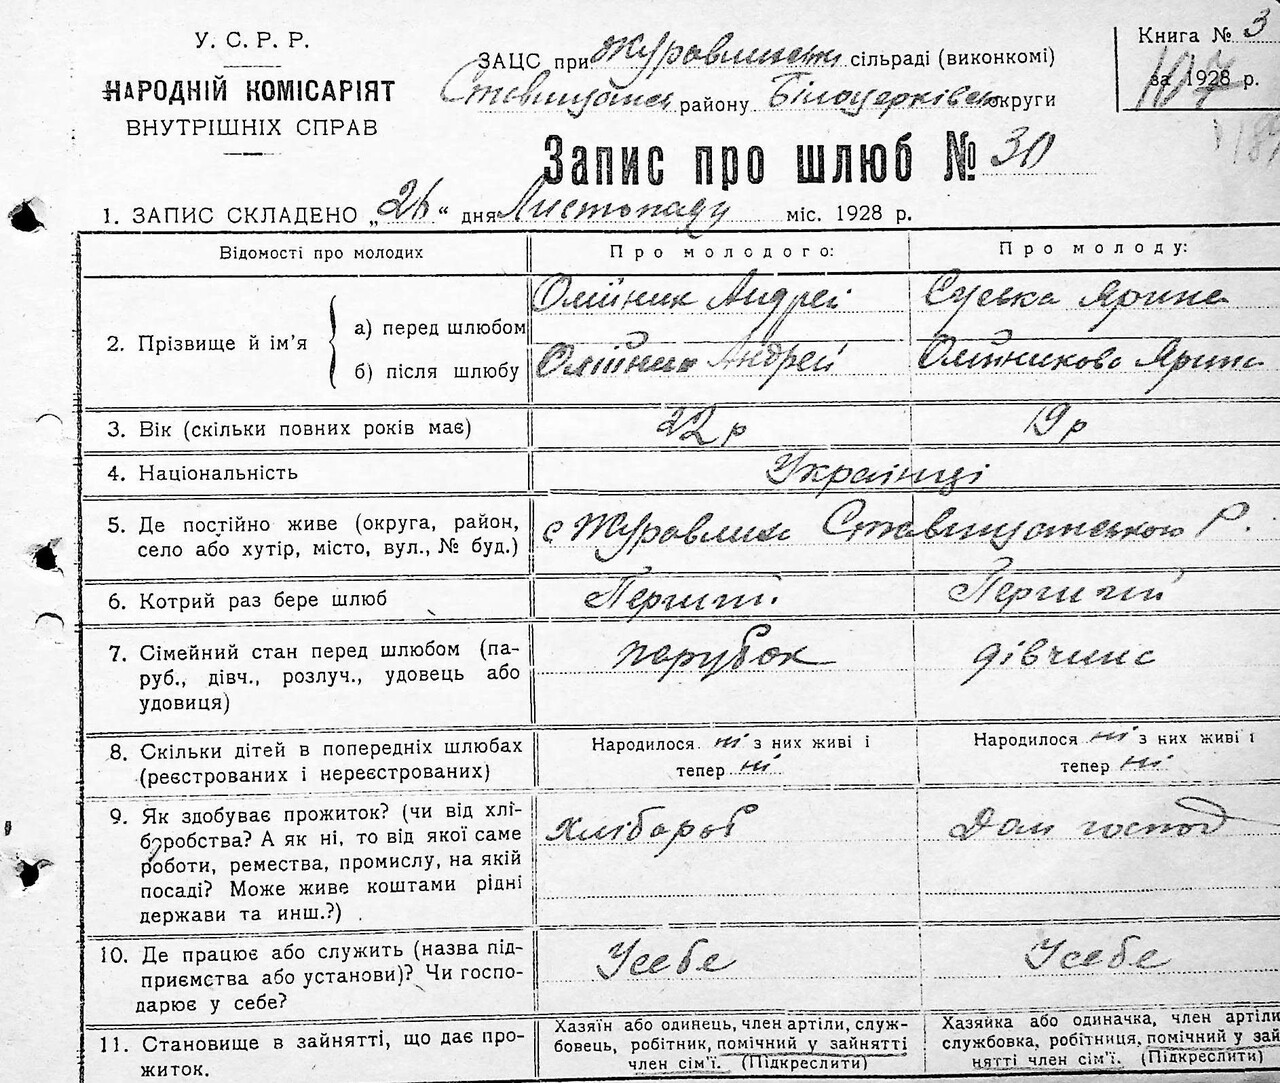 У. С. Р. Р.
НАРОДНІЙ КОМІСАРІЯТ
ВНУТРІШНІХ СПРАВ
ЗАЦС при Журавлинськ сільраді (виконкомі)
Ставищанськ району Білоцерківсько округи
Книга № 3
за 1928 р.
107
Запис про шлюб № 30
1. ЗАПИС СКЛАДЕНО „26“ дня Листопаду міс. 1928 р.
Відомості про молодих
Про молодого:
Про молоду:
2. Прізвище й ім'я
а) перед шлюбом
Олійник Андрей
Ярина
б) після шлюбу
Олійник Андрей
Олійникова Ярина
3. Вік (скільки повних років має)
22 р
19 р
4. Національність
Українці
5. Де постійно живе (округа, район,
село або хутір, місто, вул., № буд.)
с Журавлиха Ставищанською Р.
6. Котрий раз бере шлюб
Перший
Перший
7. Сімейний стан перед шлюбом (па-
руб., дівч., розлуч., удовець або
удовиця)
парубок
дівчина
8. Скільки дітей в попередніх шлюбах
(реєстрованих і нереєстрованих)
Народилося ні з них живі і
тепер ні
Народилося ні з них живі і
тепер ні
9. Як здобуває прожиток? (чи від хлі-
боробства? А як ні, то від якої саме
роботи, ремества, промислу, на якій
посаді? Може живе коштами рідні
держави та инш.?)
Хлібороб
Дом господ
10. Де працює або служить (назва під-
приємства або установи)? Чи госпо-
дарює у себе?
Усебе
Усебе
11. Становище в зайнятті, що дає про-
житок.
Хазяїн або одинець, член артіли, служ-
бовець, робітник, помічний у зайнятті
член сім'ї. (Підкреслити)
Хазяйка або одиначка, член артіли
службовка, робітниця, помічний у зай-
нятті член сім'ї. (Підкреслити)